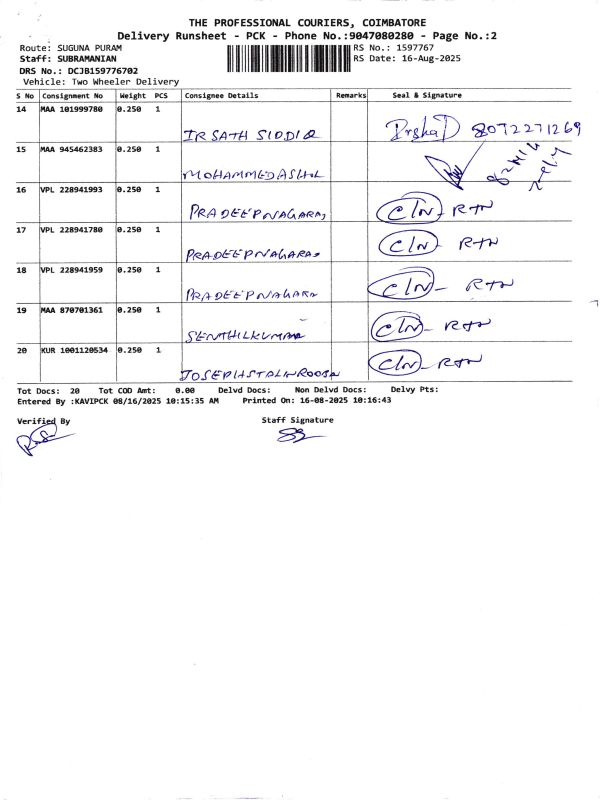 THE PROFESSIONAL COURIERS, COIMBATORE
Delivery Runsheet - PCK - Phone No.:9047080280 - Page No.:2
Route: SUGUNA PURAM RS No.: 1597767
Staff: SUBRAMANIAN RS Date: 16-Aug-2025
DRS No.: DCJB159776702
Vehicle: Two Wheeler Delivery
S No Consignment No Weight PCS Consignee Details Remarks Seal & Signature
14 MAA 101999780 0.250 1
IRSATH SIDDIQ IrshaD 8072271269
15 MAA 945462383 0.250 1
MOHAMMEDASHL
16 VPL 228941993 0.250 1
PRADEEPNAGARAJ CIN - RTN
17 VPL 228941780 0.250 1
PRADEEPNAGARAJ CIN - RTN
18 VPL 228941959 0.250 1
PRADEEPNAGARA CIN - RTN
19 MAA 870701361 0.250 1
SENTHILKUMAR CIN - RTN
20 KUR 1001120534 0.250 1
JOSEPHSTALINROOSA CIN - RTN
Tot Docs: 20 Tot COD Amt: 0.00 Delvd Docs: Non Delvd Docs: Delvy Pts:
Entered By :KAVIPCK 08/16/2025 10:15:35 AM Printed On: 16-08-2025 10:16:43
Verified By Staff Signature